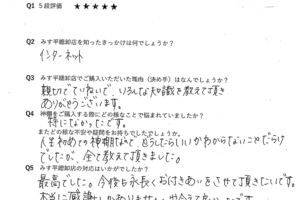 Q1 5段評価 ★★★★★
Q2 みす平總卸店を知ったきっかけは何でしょうか？
インターネット
Q3 みす平總卸店でご購入いただいた理由（決め手）はなんでしょうか？
親切でていねいで、いろんな知識を教えて頂き
ありがとうございます。
Q4 神棚をご購入する際にどの様なことで悩まれていましたか？
特になかったです。
またどの様な不安や疑問をお持ちでしたでしょうか。
人生初めての神棚なので、どうしたらいいかわからないことだらけ
でしたが、全て教えて頂きました。
Q5 みす平總卸店の対応はいかがでしたか？
最高でした。今後も永長くお付きあいをさせて頂きたいです。
本当に感謝しかありません。